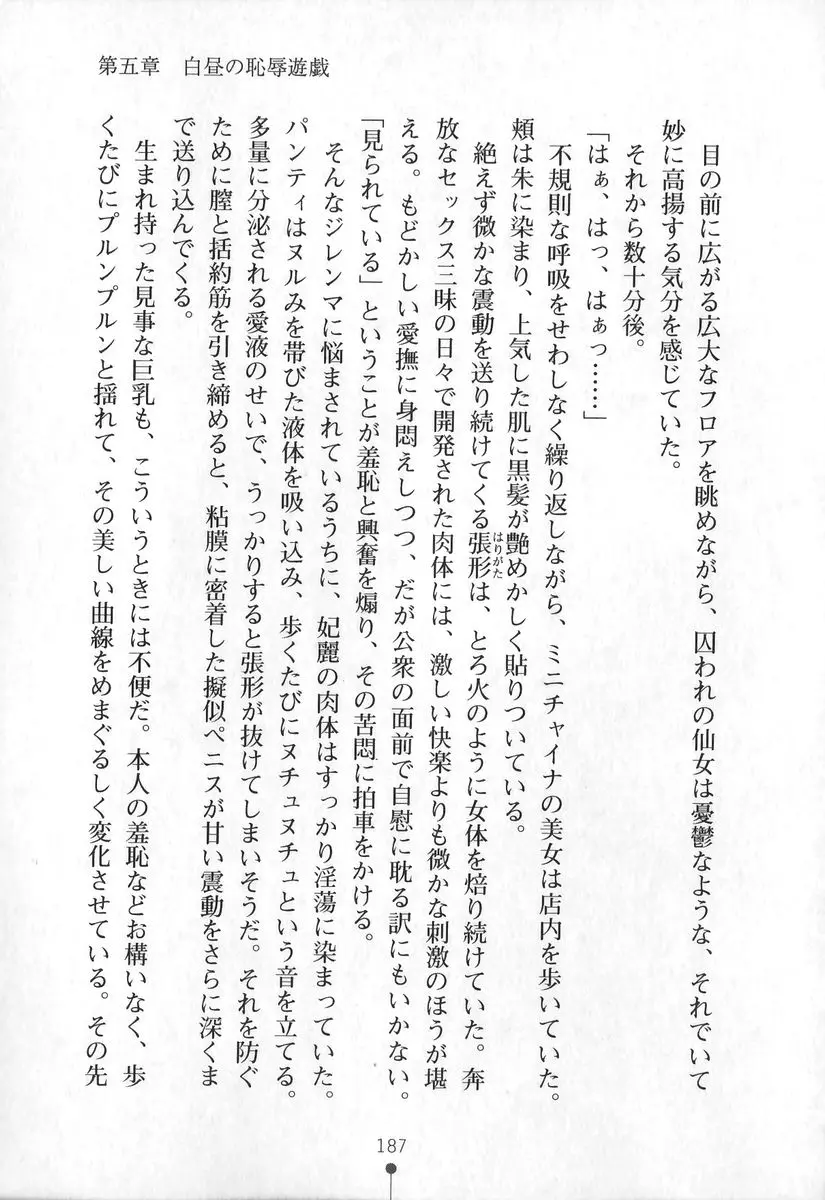 第五章　白昼の恥辱遊戯
目の前に広がる広大なフロアを眺めながら、囚われの仙女は憂鬱なような、それでいて
妙に高揚する気分を感じていた。
それから数十分後。
「はぁ、はっ、はぁっ……」
不規則な呼吸をせわしなく繰り返しながら、ミニチャイナの美女は店内を歩いていた。
頬は朱に染まり、上気した肌に黒髪が艶めかしく貼りついている。
絶えず微かな震動を送り続けてくる張形は、とろ火のように女体を焙り続けていた。奔
はりがた
放なセックス三昧の日々で開発された肉体には、激しい快楽よりも微かな刺激のほうが堪
える。もどかしい愛撫に身悶えしつつ、だが公衆の面前で自慰に耽る訳にもいかない。
「見られている」ということが羞恥と興奮を煽り、その苦悶に拍車をかける。
そんなジレンマに悩まされているうちに、妃麗の肉体はすっかり淫蕩に染まっていた。
パンティはヌルみを帯びた液体を吸い込み、歩くたびにヌチュヌチュという音を立てる。
多量に分泌される愛液のせいで、うっかりすると張形が抜けてしまいそうだ。それを防ぐ
ために膣と括約筋を引き締めると、粘膜に密着した擬似ペニスが甘い震動をさらに深くま
で送り込んでくる。
生まれ持った見事な巨乳も、こういうときには不便だ。本人の羞恥などお構いなく、歩
くたびにプルンプルンと揺れて、その美しい曲線をめまぐるしく変化させている。その先
187